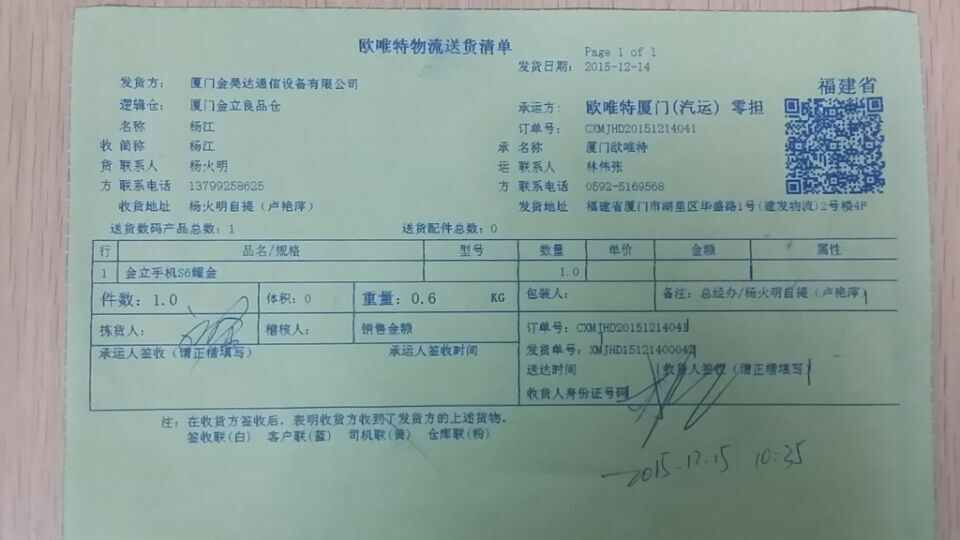 欧唯特物流送货清单
Page 1 of 1
发货日期： 2015-12-14
发货方： 厦门金昊达通信设备有限公司
福建省
逻辑仓： 厦门金立良品仓
承运方： 欧唯特厦门(汽运) 零担
名称 杨江
订单号： CXMJHD20151214041
收 简称 杨江
承 名称 厦门欧唯特
货 联系人 杨火明
运 联系人 林伟张
方 联系电话 13799258625
方 联系电话 0592-5169568
收货地址 杨火明自提（卢艳萍）
发货地址 福建省厦门市湖里区华盛路1号(建发物流)2号楼4F
送货数码产品总数： 1 送货配件总数： 0
行 品名/规格 型号 数量 单价 金额 属性
1 金立手机S6耀金 1.0
件数： 1.0 体积： 0 重量： 0.6 KG 包装人： 备注： 总经办/杨火明自提（卢艳萍）
拣货人： 稽核人： 销售金额 订单号： CXMJHD20151214041
承运人签收（请正楷填写） 承运人签收时间 发货单号： XMJHD15121400042
送达时间 收货人签收（请正楷填写）
收货人身份证号码
注： 在收货方签收后，表明收货方收到了发货方的上述货物。
签收联(白) 客户联(蓝) 司机联(黄) 仓库联(粉)
2015-12.15 10:35